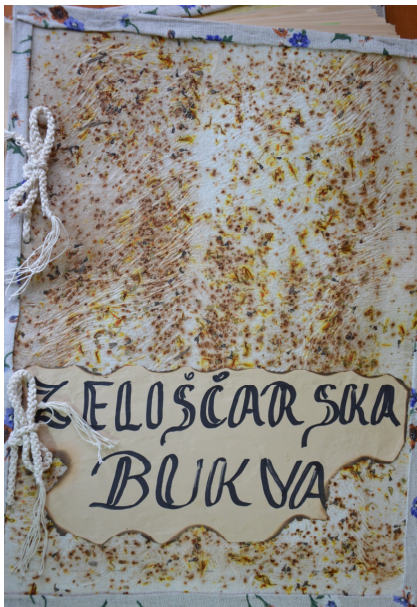 ZELIŠČARSKA
BUKVA